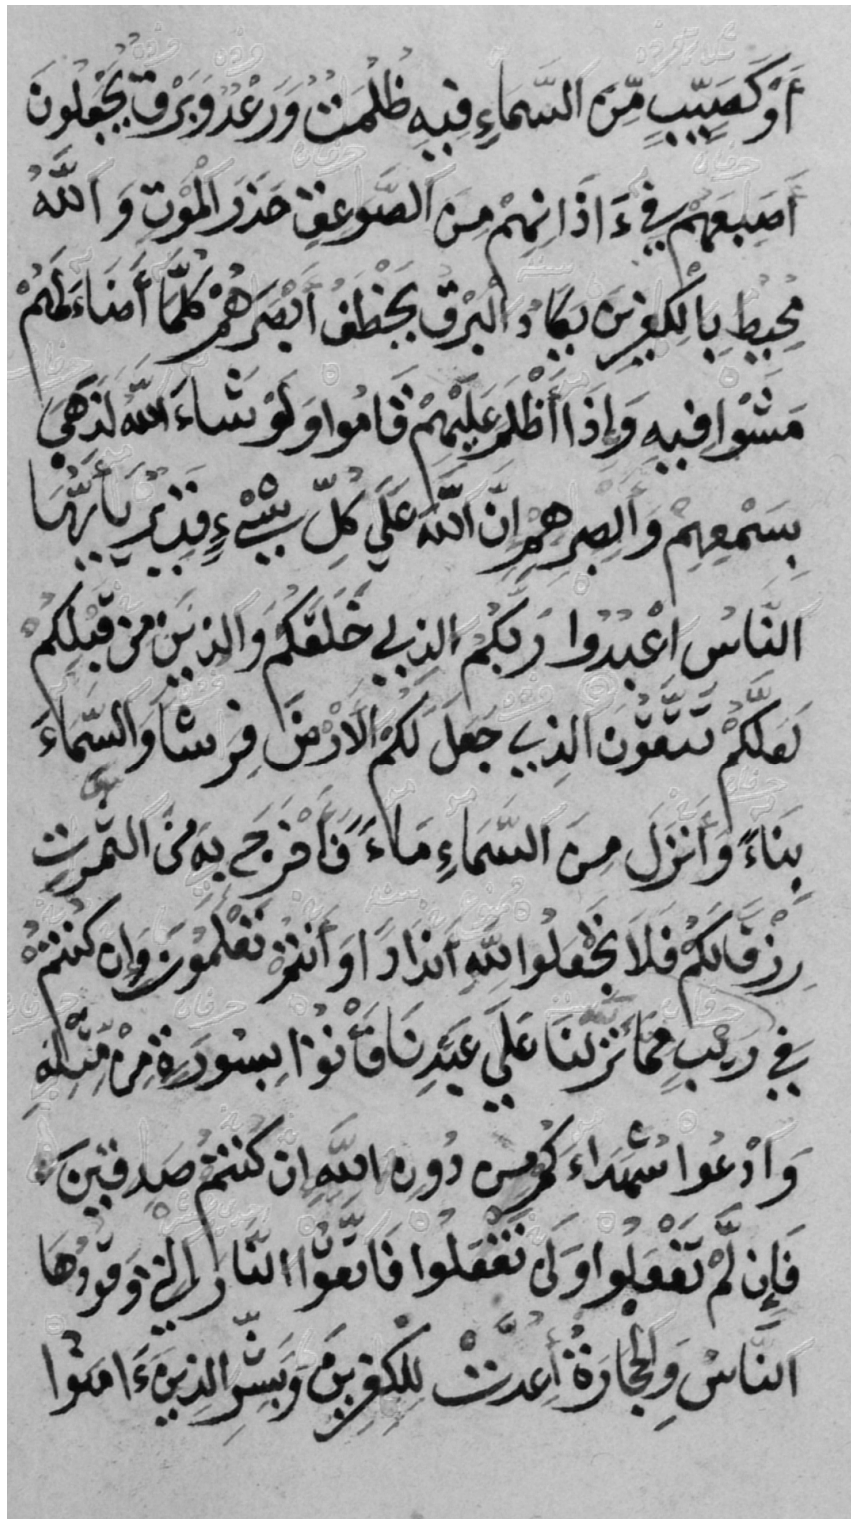 أَوْ كَصَيِّبٍ مِّنَ السَّمَاءِ فِيهِ ظُلُمَتٌ وَرَعْدٌ وَبَرْقٌ يَجْعَلُونَ
أَصَبِعَهُمْ فِي ءَاذَانِهِمْ مِنَ الصَّوَعِقِ حَذَرَ الْمَوْتِ وَاللَّهُ
مُحِيطٌ بِالْكَفِرِينَ يَكَادُ الْبَرْقُ يَخْطَفُ أَبْصَرَهُمْ كُلَّمَا أَضَاءَ لَهُمْ
مَشَوْا فِيهِ وَإِذَا أَظْلَمَ عَلَيْهِمْ قَامُوا وَلَوْ شَاءَ اللَّهُ لَذَهَبَ
بِسَمْعِهِمْ وَأَبْصَرِهِمْ إِنَّ اللَّهَ عَلَي كُلِّ شَيْءٍ قَدِيرٌ يَأَيُّهَا
النَّاسُ اعْبُدُوا رَبَّكُمُ الذِي خَلَقَكُمْ وَالذِينَ مِن قَبْلِكُمْ
لَعَلَّكُمْ تَتَّقُونَ الذِي جَعَلَ لَكُمُ الَارْضَ فِرَشًا وَالسَّمَاءَ
بِنَاءً وَأَنزَلَ مِنَ السَّمَاءِ مَاءً فَأَخْرَجَ بِهِ مِنَ الثَّمَرَتِ
رِزْقًا لَكُمْ فَلَا تَجْعَلُوا لِلَّهِ أَندَادًا وَأَنتُمْ تَعْلَمُونَ وَإِن كُنتُمْ
فِي رَيْبٍ مِمَّا نَزَّلْنَا عَلَي عَبْدِنَا فَأْتُوا بِسُورَةٍ مِنْ مِّثْلِهِ
وَادْعُوا شُهَدَاءَكُم مِن دُونِ اللَّهِ إِن كُنتُمْ صَدِقِينَ
فَإِن لَّمْ تَفْعَلُوا وَلَن تَفْعَلُوا فَاتَّقُوا النَّارَ التِي وَقُودُهَا
النَّاسُ وَالْحِجَارَةُ أُعِدَّتْ لِلْكَفِرِينَ وَبَشِّرِ الذِينَ ءَامَنُوا